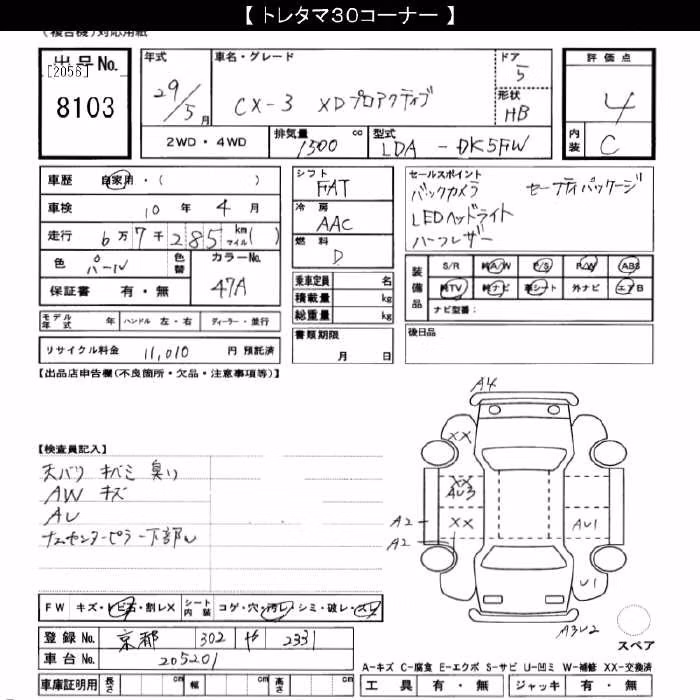 【 トレタマ30コーナー 】
(複合機)対応用紙
出品No.
[2056]
8103
年式
29/5月
車名・グレード
CX-3 XDプロアクティブ
ドア
5
形状
HB
評価点
4
内装
C
2WD・4WD
排気量 1500 cc
型式 LDA - DK5FW
車歴 自家用・( )
車検 10年 4月
走行 6万7千285 km マイル( )
色 パール
色替
カラーNo.
47A
保証書 有・無
モデル年式 年 ハンドル 左・右 ディーラー・並行
リサイクル料金 11,010 円 預託済
シフト
FAT
冷房
AAC
燃料
D
乗車定員 名
積載量 kg
総重量 kg
書類期限
月 日
セールスポイント
バックカメラ セーフティパッケージ
LEDヘッドライト
ハーフレザー
装備品
S/R 純A/W P/S P/W ABS
純TV 純ナビ 革シート 外ナビ エアB
ナビ型番:
後日品
【出品店申告欄(不良箇所・欠品・注意事項等)】
【検査員記入】
天バリ キバミ 臭い
AW キズ
AU
センターピラー下部
A4
XX
XX
AU3
XX
A2
A2
AU1
U1
A3U2
スペア
FW キズ・トビ石・割レX シート内装 コゲ・穴・汚レ・シミ・破レ・スレ
登録No. 京都 302 や 2331
車台No. 205201
車庫証明用 長さ cm 幅 cm 高さ cm
A-キズ C-腐食 E-エクボ S-サビ U-凹ミ W-補修 XX-交換済
工具 有・無 ジャッキ 有・無